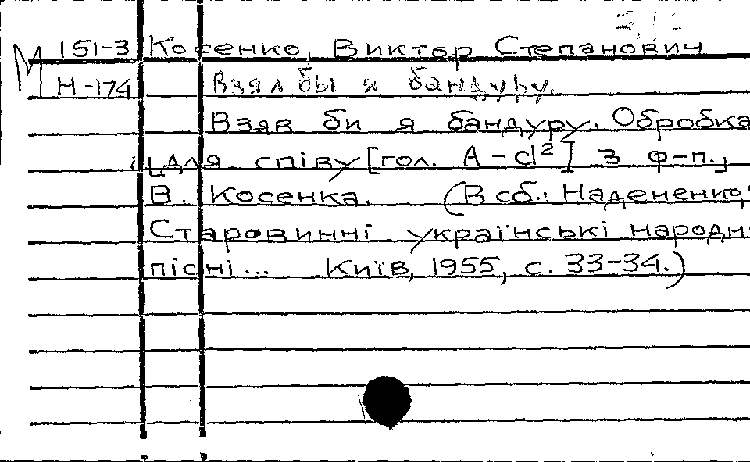 М 151-3 Косенко, Виктор Степанович
Н-174 Взял бы я бандуру.
Взяв би я бандуру. Обробка
для співу [гол. A – d²] з ф-п.,
В. Косенка. (В сб.: Надененко,
Старовинні українські народні
пісні... Київ, 1955, с. 33-34.)